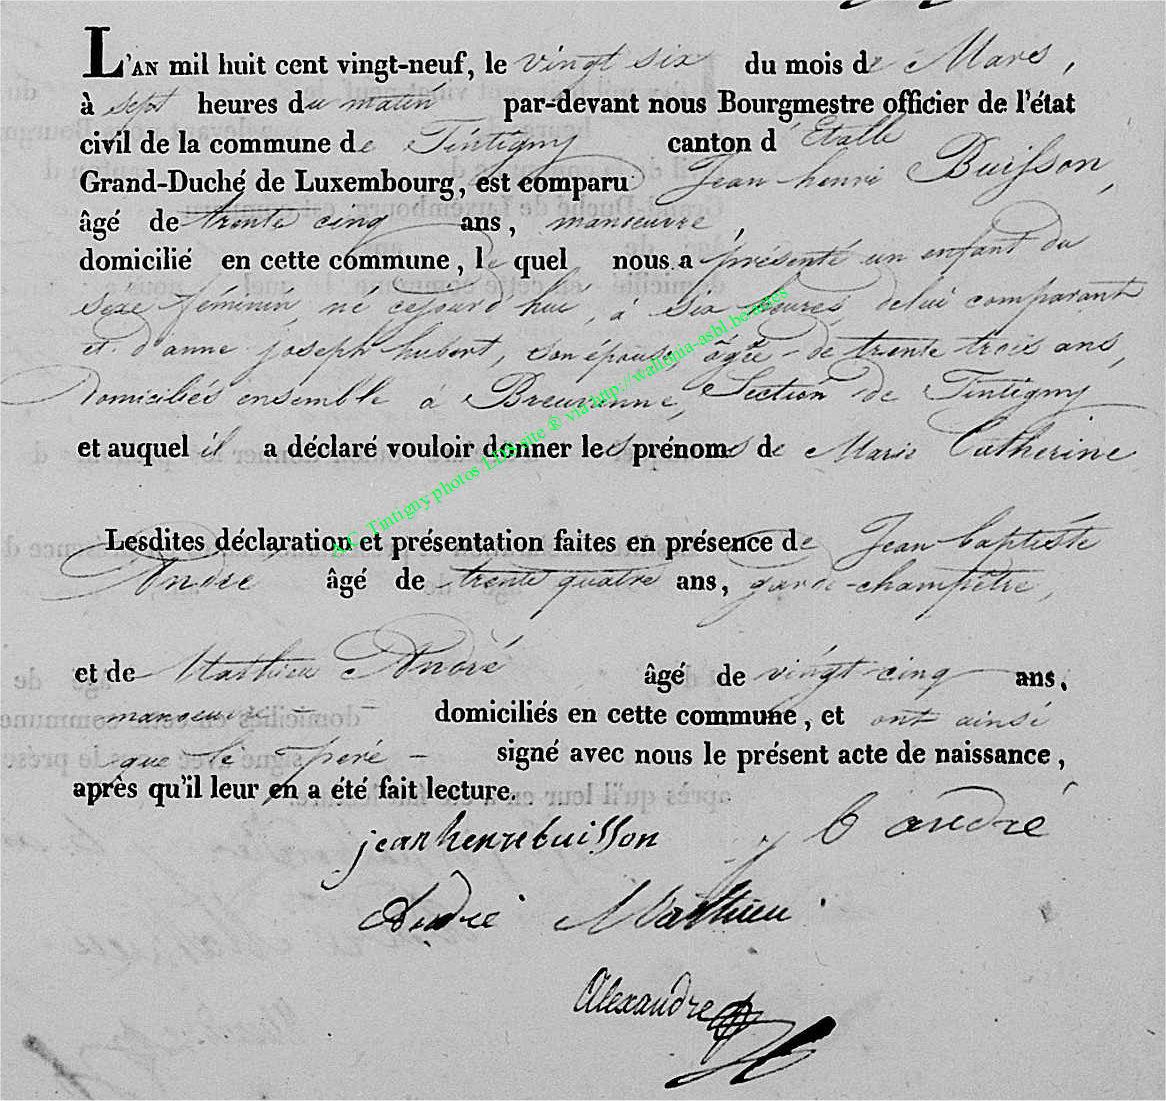 L'AN mil huit cent vingt-neuf, le vingt six du mois de Mars,
à sept heures du matin par-devant nous Bourgmestre officier de l'état
civil de la commune de Tintigny canton d'Etalle
Grand-Duché de Luxembourg, est comparu Jean henri Buisson,
âgé de trente cinq ans, manoeuvre,
domicilié en cette commune, le quel nous a présenté un enfant du
sexe féminin, né cejourd'hui, à six heures, de lui comparant
et d'anne joseph hubert, son épouse, âgée de trente trois ans,
Domiciliés ensemble à Breuvanne, Section de Tintigny
et auquel il a déclaré vouloir donner les prénoms de Marie Catherine
Lesdites déclaration et présentation faites en présence de Jean baptiste
André âgé de trente quatre ans, garde-champêtre,
et de Mathieu André âgé de vingt cinq ans,
manoeuvre - - domiciliés en cette commune, et ont ainsi
que le père - signé avec nous le présent acte de naissance,
après qu'il leur en a été fait lecture.
jean henre buisson j b andré
André Mathieu
Alexandre
A.C. Tintigny photos LDS site ® via http://wallonia-asbl.be/actes